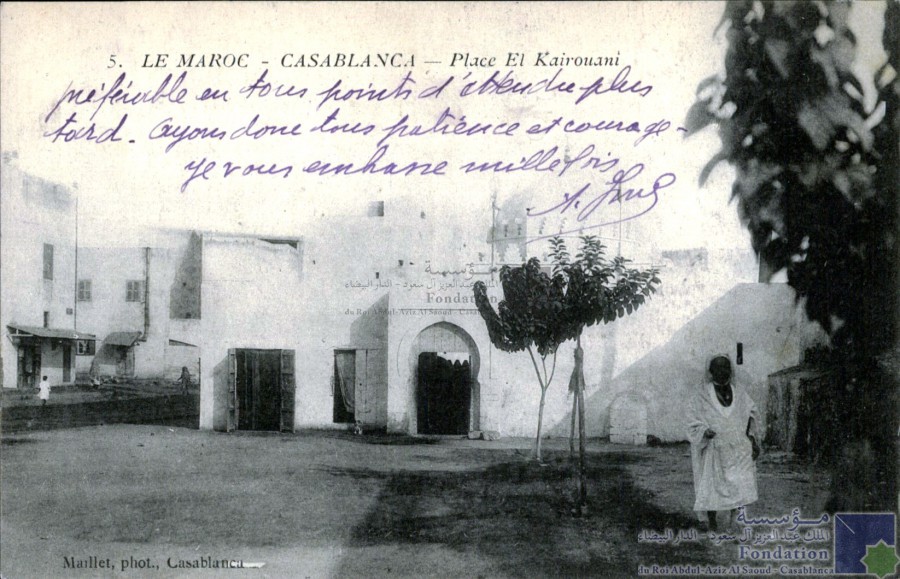 5. LE MAROC - CASABLANCA — Place El Kairouani
préférable en tous points d'attendre plus
tard. Ayons donc tous patience et courage -
je vous embrasse mille fois
Maillet, phot., Casablanca
مؤسسة
الملك عبد العزيز آل سعود - الدار البيضاء
Fondation
du Roi Abdul-Aziz Al Saoud - Casablanca
مؤسسة
الملك عبد العزيز آل سعود - الدار البيضاء
Fondation
du Roi Abdul-Aziz Al Saoud - Casablanca